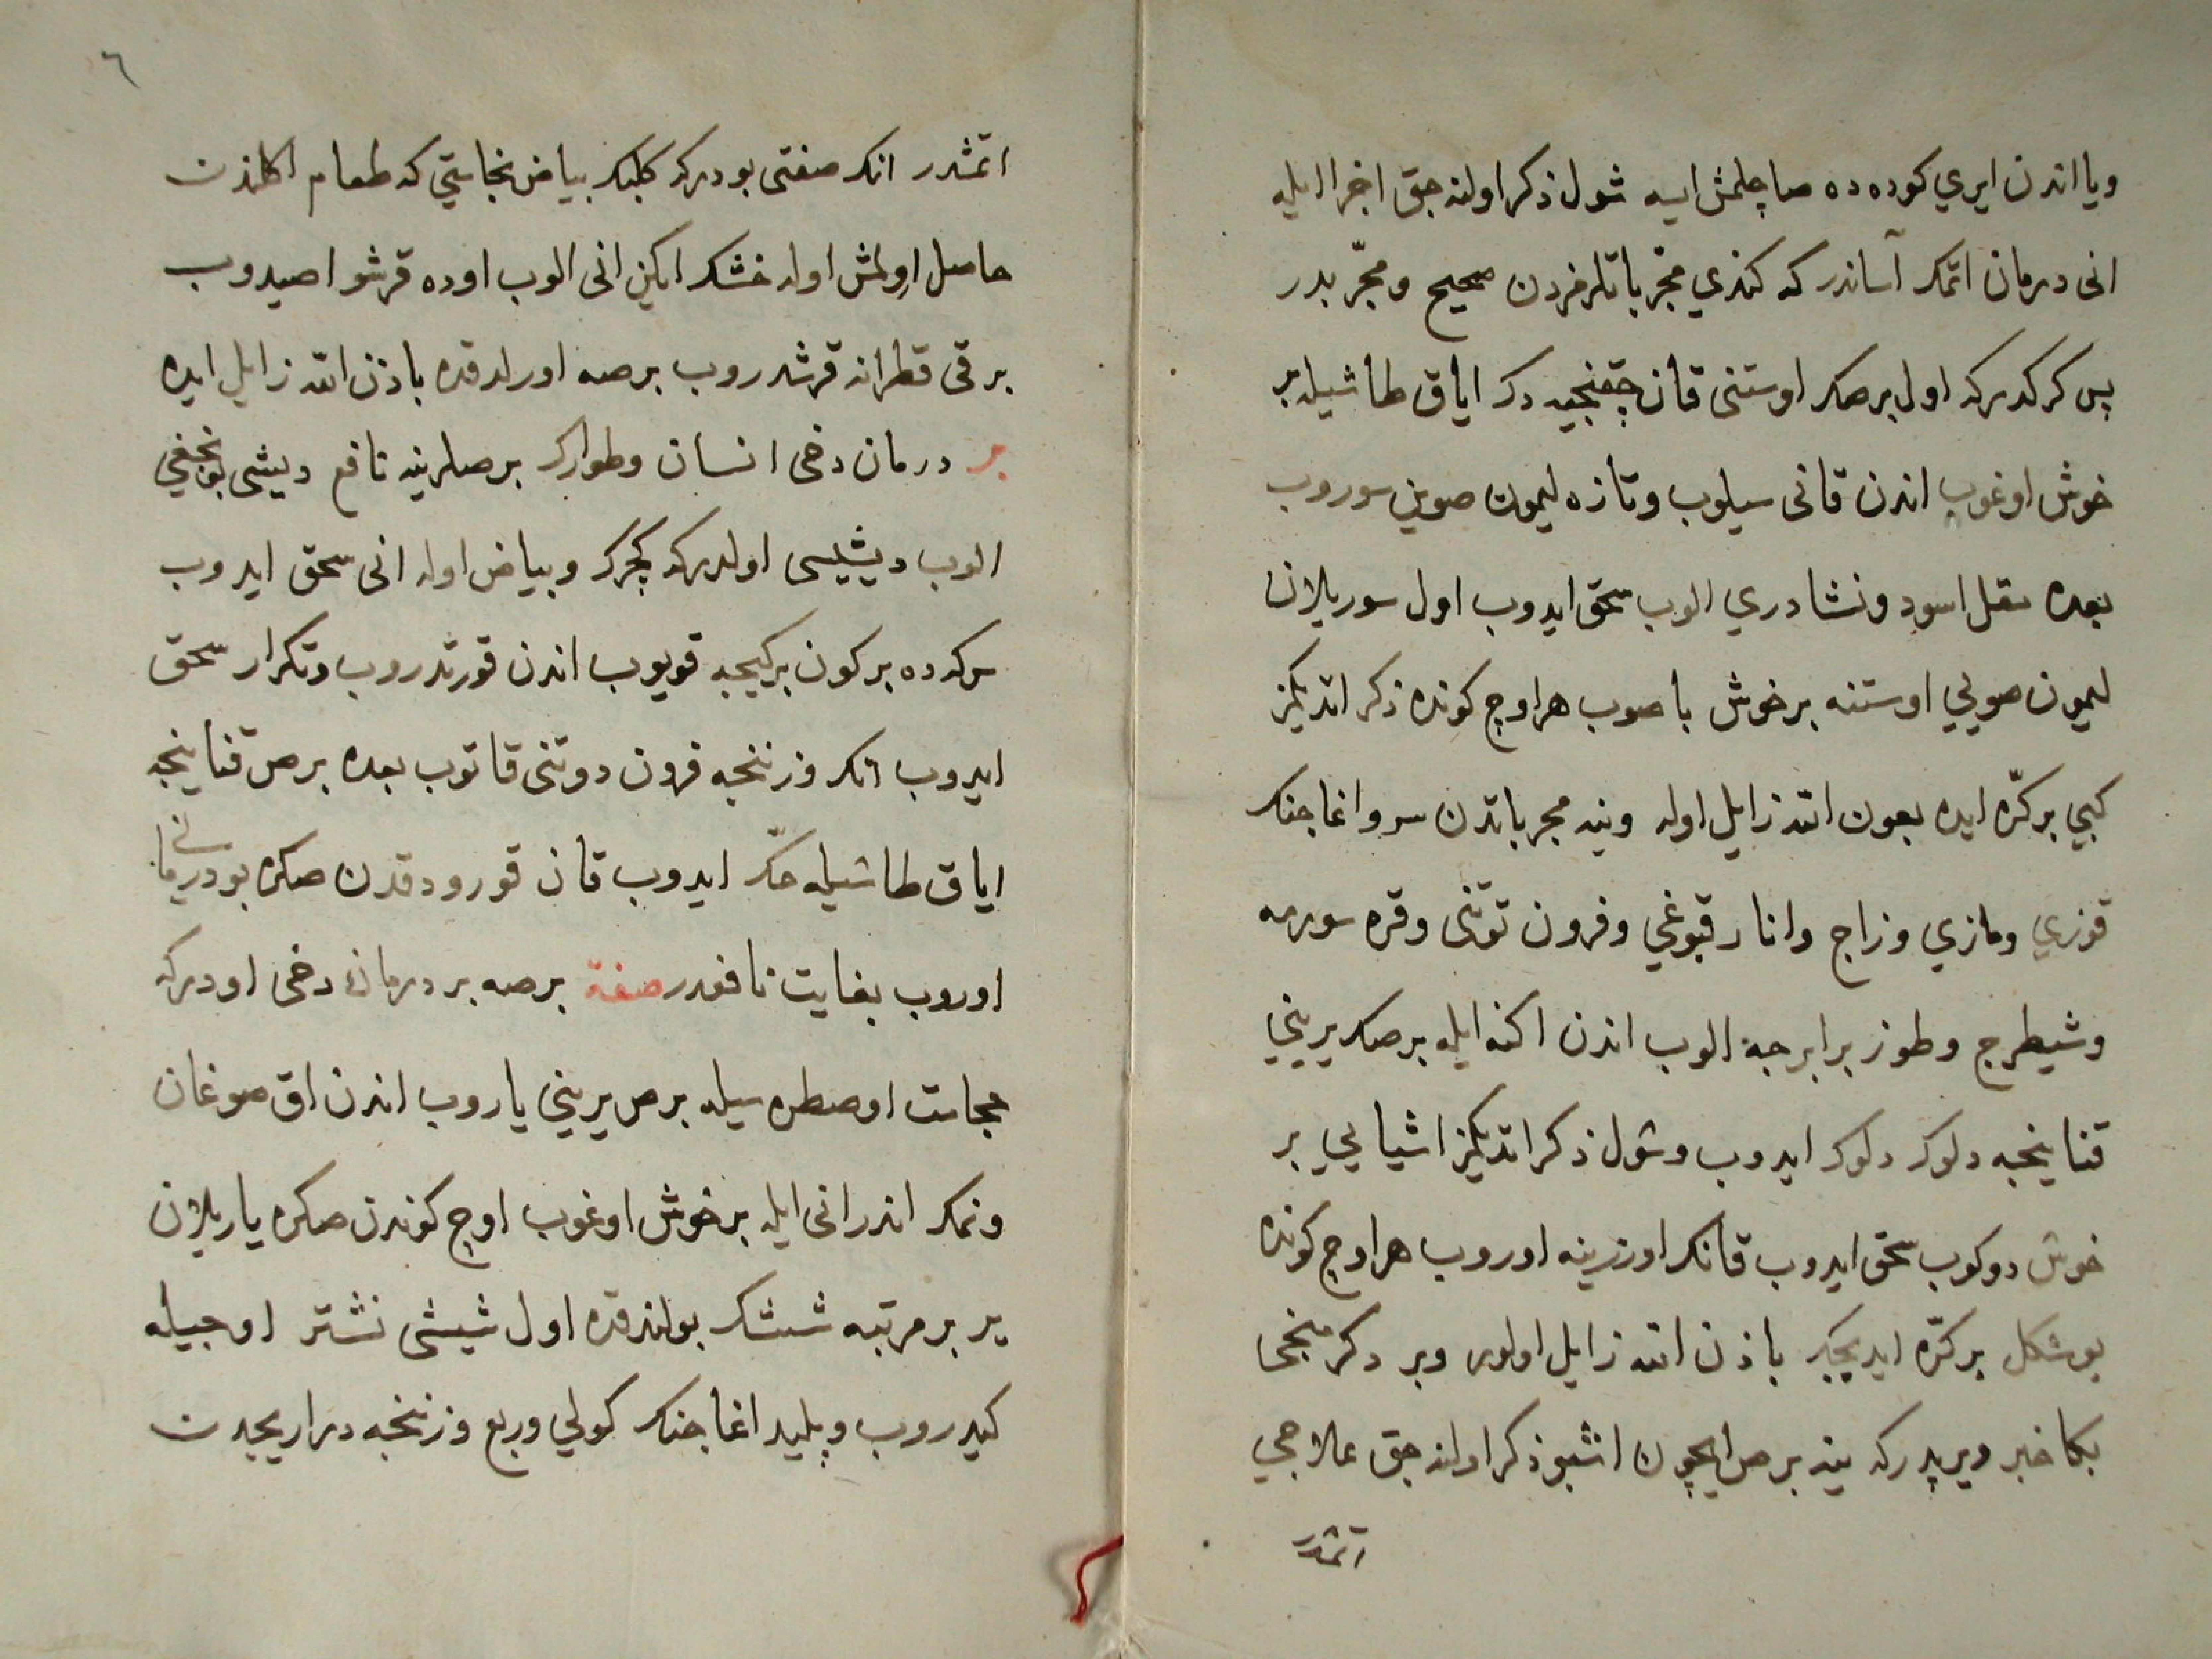 ويا اندن ايري كوده ده صاچلمش ايسه شول ذكر اولنه جق اخرا ايله
انى درمان اتمك آساندر كه كندي مجرباتلرمزدن صحيح ومجرّبدر
پس كركدركه اول برصك اوستنى قان چقنجيه دك اياق طاشيله بر
خوش اوغوب اندن قانى سيلوب وتازه ليمون صوين سوروب
بعده مقل اسود ونشادري الوب سحق ايدوب اول سوريلان
ليمون صويي اوستنه برخوش باصوب هر اوچ كونده ذكر اتديكمز
كبي بركرّه ايده بعون الله زايل اوله وينه مجرباتدن سرو اغاجنك
قوزي ومازي وزاج وانار قبوغي وفرون توتنى وقره سورمه
وشيطرج وطوز برابرجه الوب اندن اكنه ايله برصك يريني
قناينجه دلوك دلوك ايدوب وشول ذكر اتديكمز اشيايي بر
خوش دوكوب سحق ايدوب قانك اوزرينه اوروب هر اوچ كونده
بوشكل بركرّه ايديجك باذن الله زايل اولور وبر دكرمنجى
بكا خبر ويرديكه ينه برص ايچون اشبو ذكر اولنه جق علاجي
اتمشدر
٦
اتمشدر انك صفتى بودركه كلبك بياض نجاستي كه طعام اكلندن
حاصل اولمش اوله خشك ايكن انى الوب اوده قرشو اصيدوب
برقى قطرانه قرشدروب برصه اورلدقده باذن الله زايل ايده
بر درمان دخى انسان وطوارك برصلرينه نافع ديشى بونجغي
الوب ديشيسى اولدركه كچرك وبياض اوله انى سحق ايدوب
سركه ده بركون بركيجه قويوب اندن قورتدروب وتكرار سحق
ايدوب انك وزننجه فرون دوتنى قاتوب بعده برص قناينجه
اياق طاشيله حكّ ايدوب قان قورودقدن صكره بودرمانى
اوروب بغايت نافعدر صفة برصه بر درمان دخى اودركه
حجامت اوصطره سيله برص يريني ياروب اندن اق صوغان
ونمك اندرانى ايله برخوش اوغوب اوچ كوندن صكره ياريلان
ير بر مرتبه شيشك بولندقده اول شيشى نشتر اوجيله
كيدروب وپليد اغاجنك كولي وربع وزننجه دراريحدن